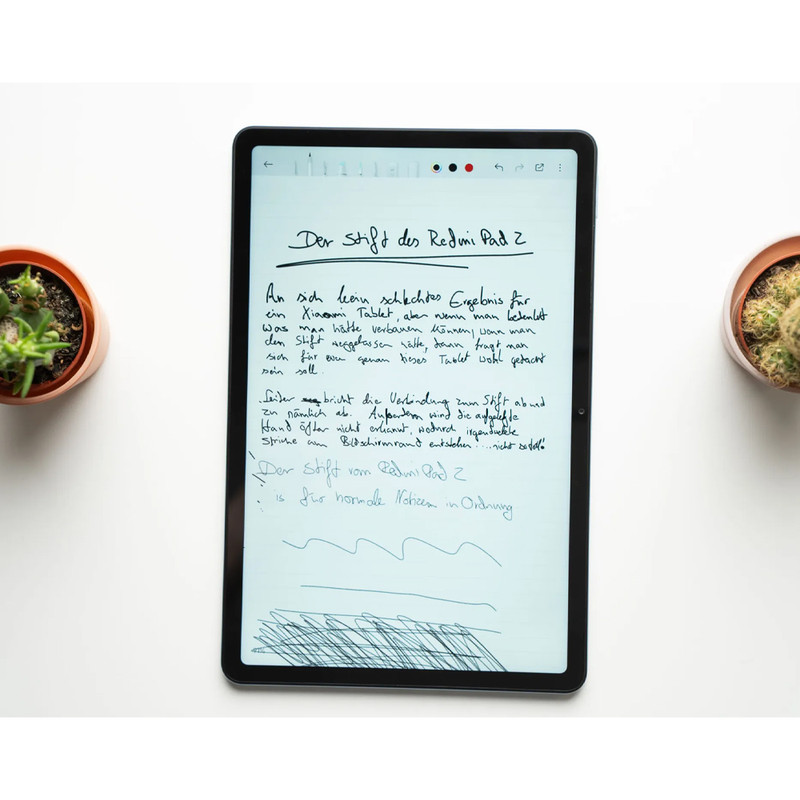 Der Stift des Redmi Pad 2
An sich kein schlechtes Ergebnis für
ein Xiaomi Tablet, aber wenn man bedenkt
was man hätte verbauen können, wenn man
den Stift weggelassen hätte, dann fragt man
sich für wen genau dieses Tablet wohl gedacht
sein soll.
Leider bricht die Verbindung zum Stift ab und
zu nämlich ab. Außerdem wird die aufgelegte
Hand öfter nicht erkannt, wodurch
Striche am Bildschirmrand entstehen ... nicht
Der Stift vom Redmi Pad 2
is für normale Notizen in Ordnung